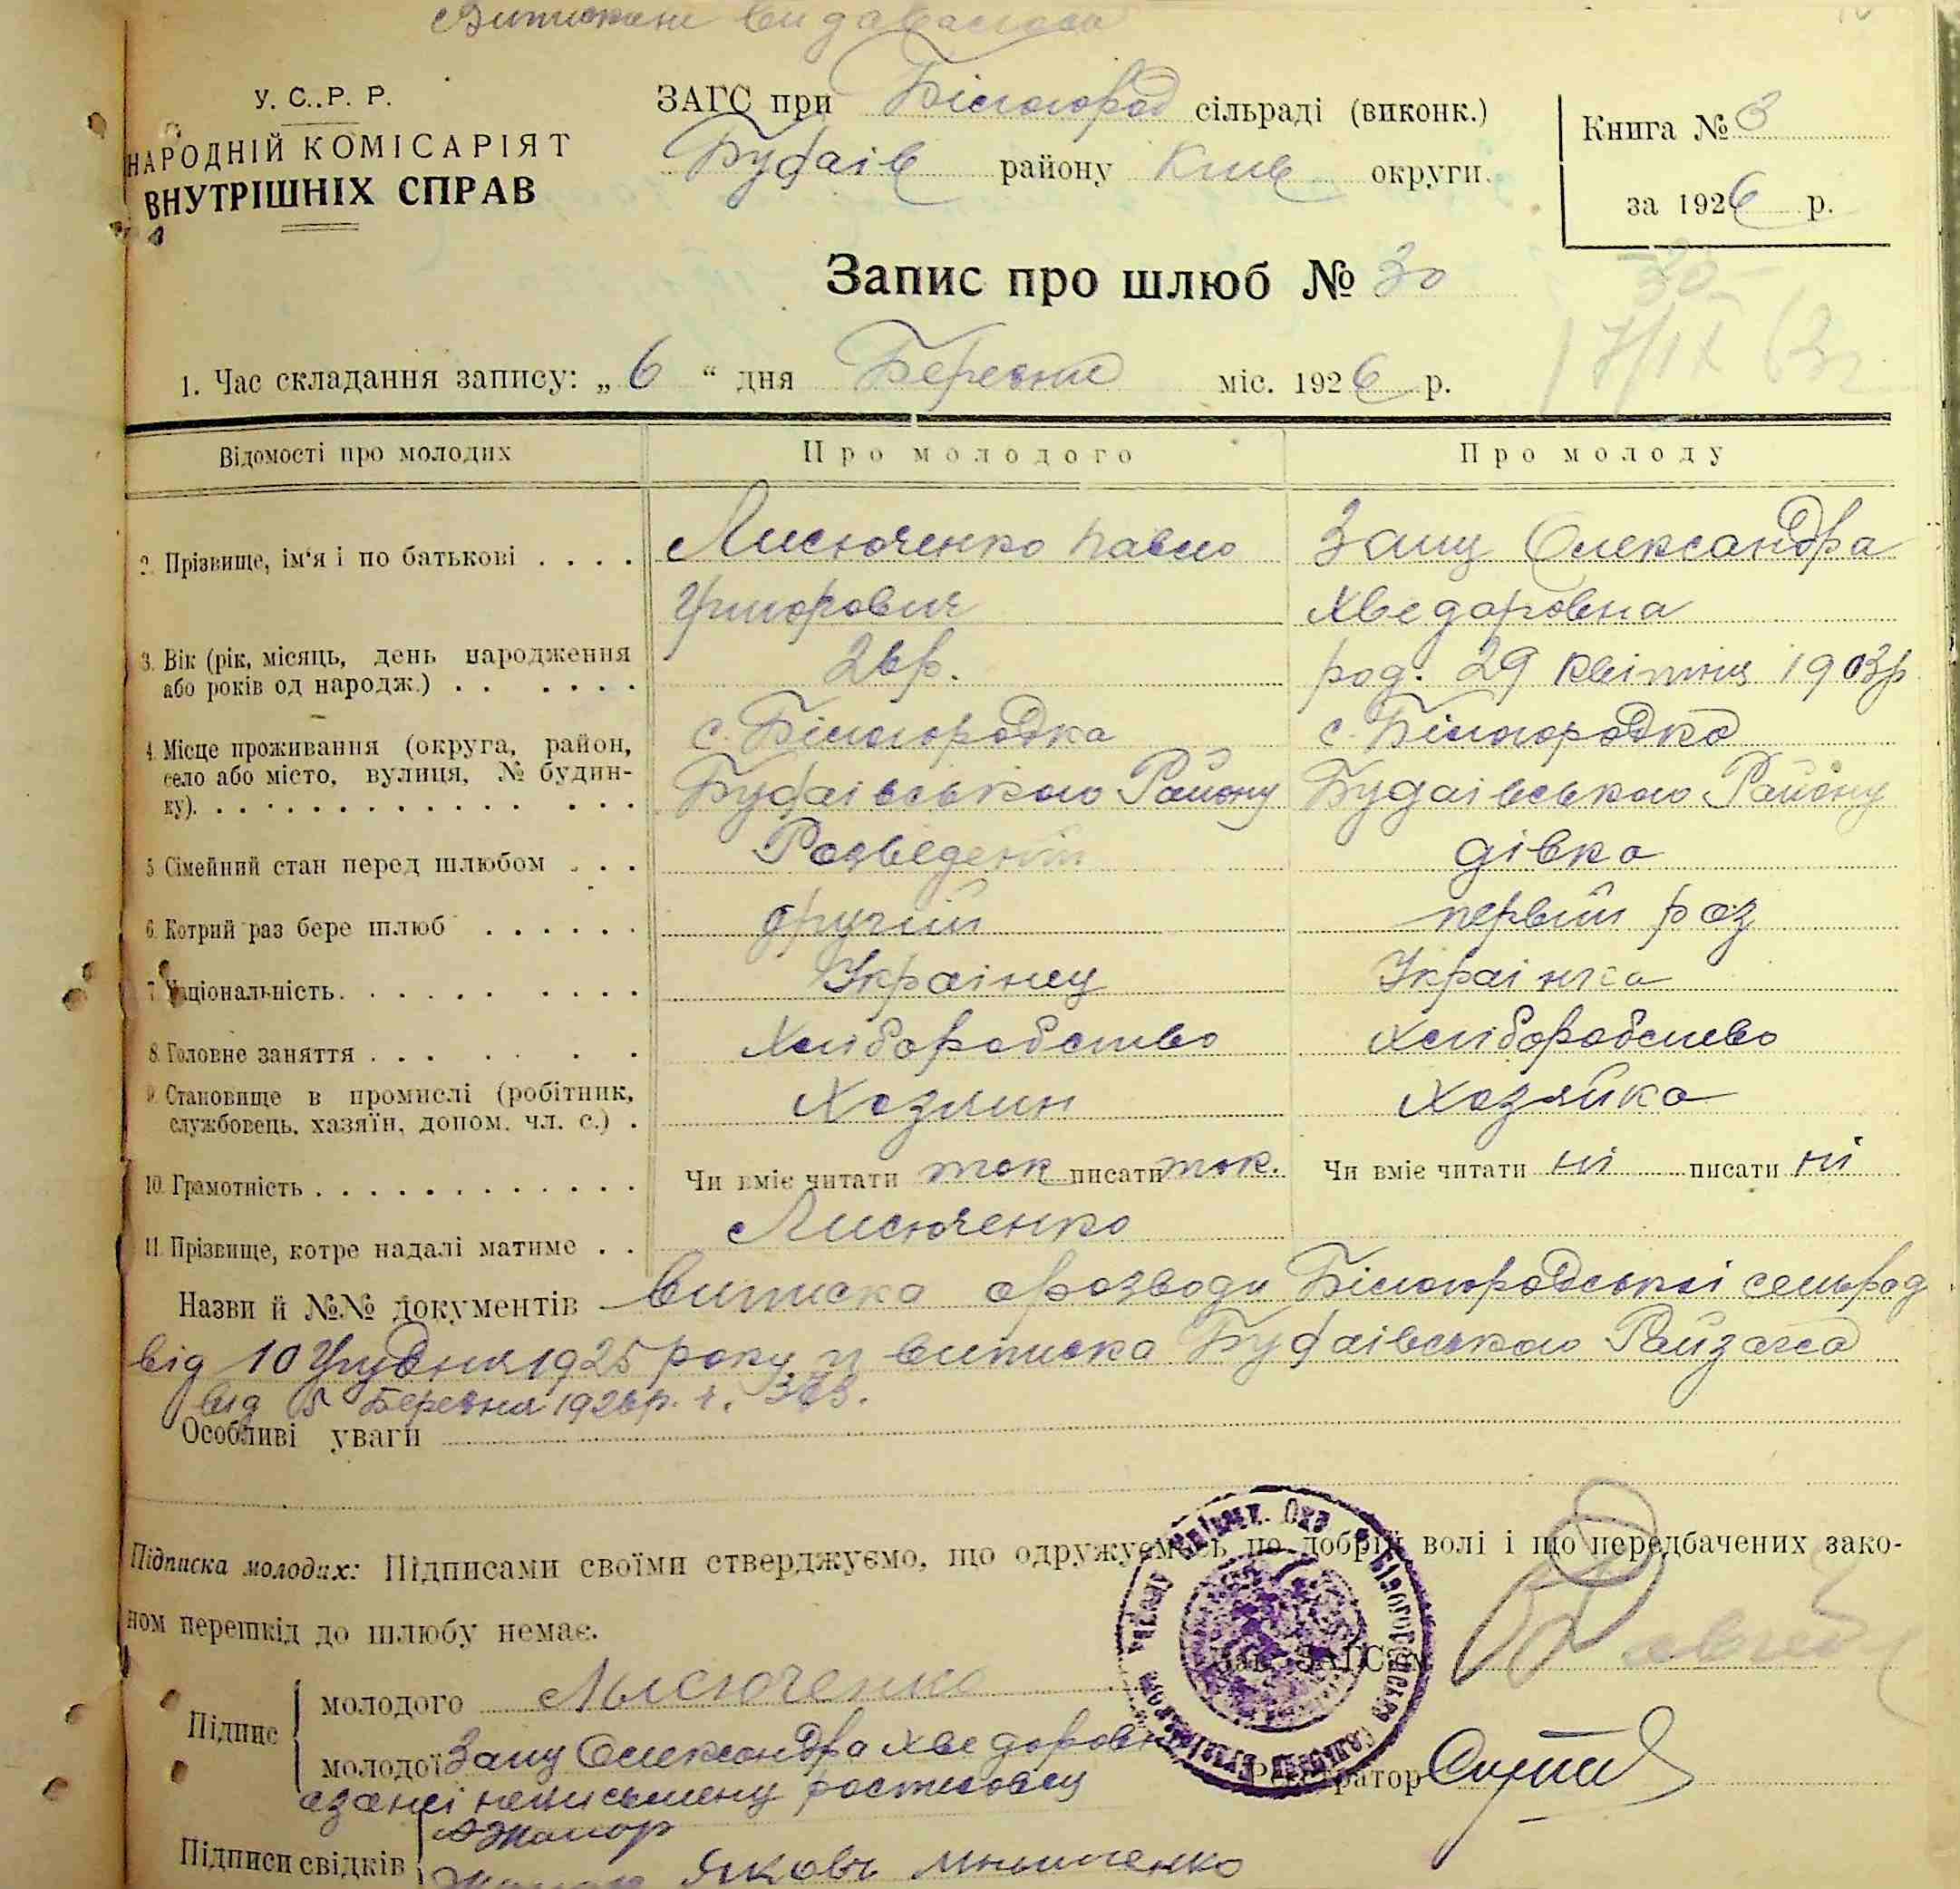 У. С. Р. Р.
НАРОДНІЙ КОМІСАРІЯТ
ВНУТРІШНІХ СПРАВ
ЗАГС при Білогород сільраді (виконк.)
Будаів району Київ округи.
Книга № 3
за 1926 р.
Запис про шлюб № 30
30
1. Час складання запису: „ 6 “ дня Березня міс. 1926 р.
Відомості про молодих Про молодого Про молоду
2. Прізвище, ім'я і по батькові . . . . Лисюченко Павло Защ Олександра
Григорович Хведоровна
3. Вік (рік, місяць, день народження 26 р. род. 29 квітня 1903 р
або років од народж.) . . . . . .
4. Місце проживання (округа, район, с. Білогородка с. Білогородка
село або місто, вулиця, № будин- Будаівського Району Будаівського Району
ку). . . . . . . . . . . . . . .
5. Сімейний стан перед шлюбом . . . Разведений дівка
6. Котрий раз бере шлюб . . . . . . другий первий раз
7. Національність. . . . . . . . . . Украінец Украінка
8. Головне заняття . . . . . . . Хліборобство Хліборобство
9. Становище в промислі (робітник, Хозяин Хозяйка
службовець, хазяїн, допом. чл. с.) .
10. Грамотність . . . . . . . . . . . . . Чи вміє читати так писати так. Чи вміє читати ні писати ні
11. Прізвище, котре надалі матиме . . Лисюченко
Назви й №№ документів Виписка о розводи Білогородськоі сельрад
від 10 Грудня 1925 року и виписка Будаівського Райзагса
від 5 Березня 1926 р. ч. 363.
Особливі уваги
Підписка молодих: Підписами своїми стверджуємо, що одружуємось по добрій волі і що передбачених зако-
ном перешкід до шлюбу немає.
Зав. ЗАГС'у
Підпис
молодого Лысюченко
молодої Защ Олександра Хведоровн
а за неі неписьмену
Реєстратор
Підписи свідків
Яковъ